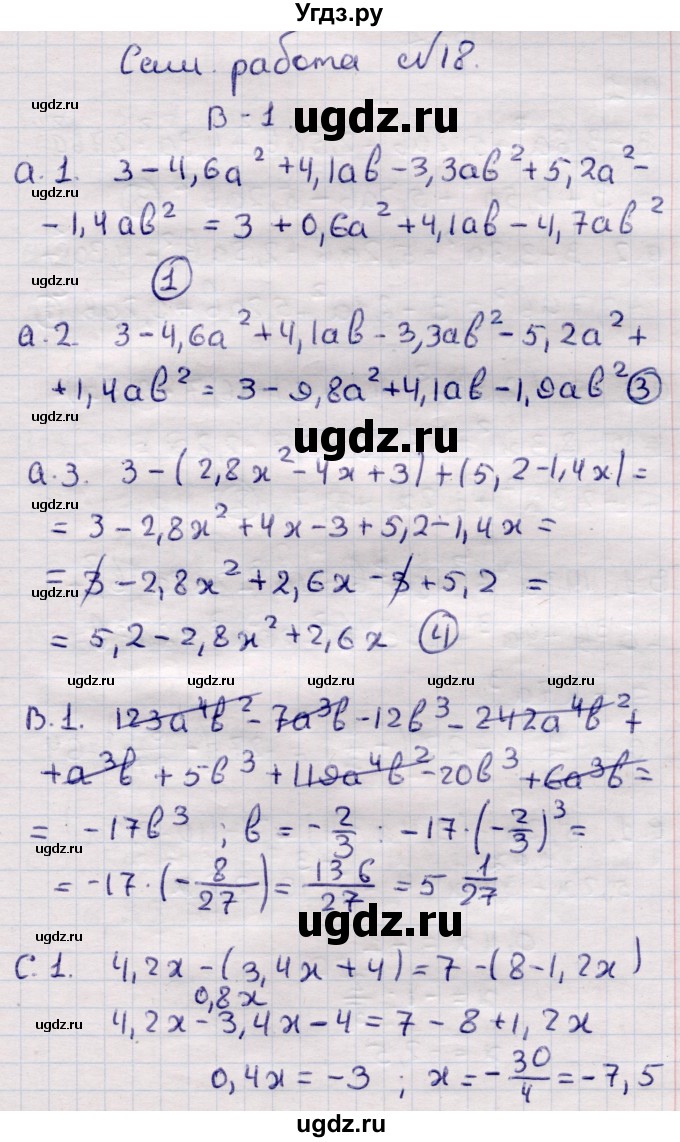 Угдз.ру
Сам. работа №18.
ugdz.ru ugdz.ru ugdz.ru
В-1.
ugdz.ru
а.1. 3 - 4,6a² + 4,1ab - 3,3ab² + 5,2a² -
- 1,4ab² = 3 + 0,6a² + 4,1ab - 4,7ab²
ugdz.ru ①
а.2. 3 - 4,6a² + 4,1ab - 3,3ab² - 5,2a² +
+ 1,4ab² = 3 - 9,8a² + 4,1ab - 1,9ab² ③
ugdz.ru ugdz.ru
а.3. 3 - (2,8x² - 4x + 3) + (5,2 - 1,4x) =
ugdz.ru
= 3 - 2,8x² + 4x - 3 + 5,2 - 1,4x =
= 3 - 2,8x² + 2,6x - 3 + 5,2 =
ugdz.ru
= 5,2 - 2,8x² + 2,6x ④
ugdz.ru ugdz.ru ugdz.ru ugdz.ru ugdz.ru
В.1. 123a⁴b² - 7a³b - 12b³ - 242a⁴b² +
+ a³b + 5b³ + 119a⁴b² - 20b³ + 6a³b =
= -17b³ ; b = -2/3 : -17·(-2/3)³ =
ugdz.ru
= -17·(-8/27) = 136/27 = 5 1/27
ugdz.ru
ugdz.ru
С.1. 4,2x - (3,4x + 4) = 7 - (8 - 1,2x)
0,8x
4,2x - 3,4x - 4 = 7 - 8 + 1,2x
ugdz.ru
0,4x = -3 ; x = -30/4 = -7,5
ugdz.ru